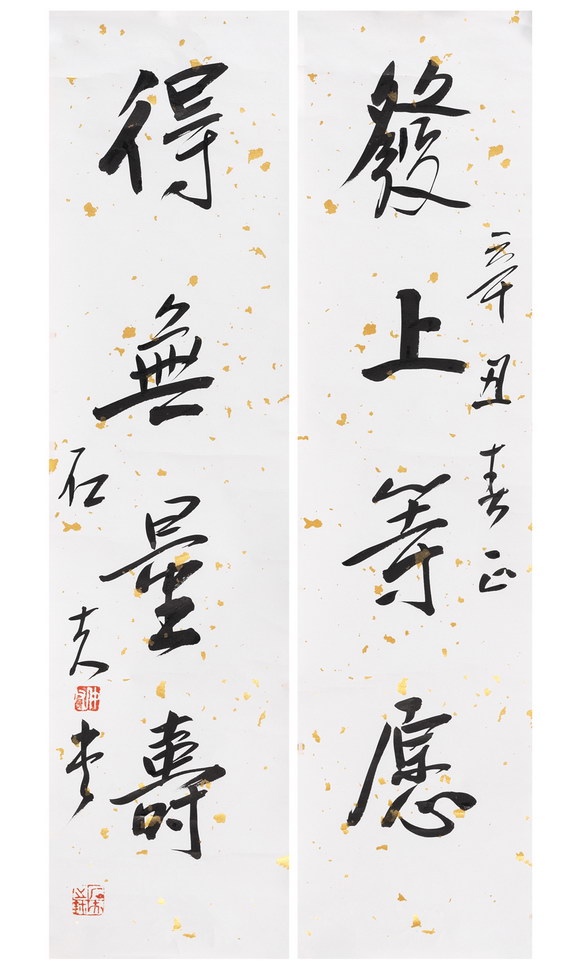 辛丑春正
發上等愿
得無量壽
石 书